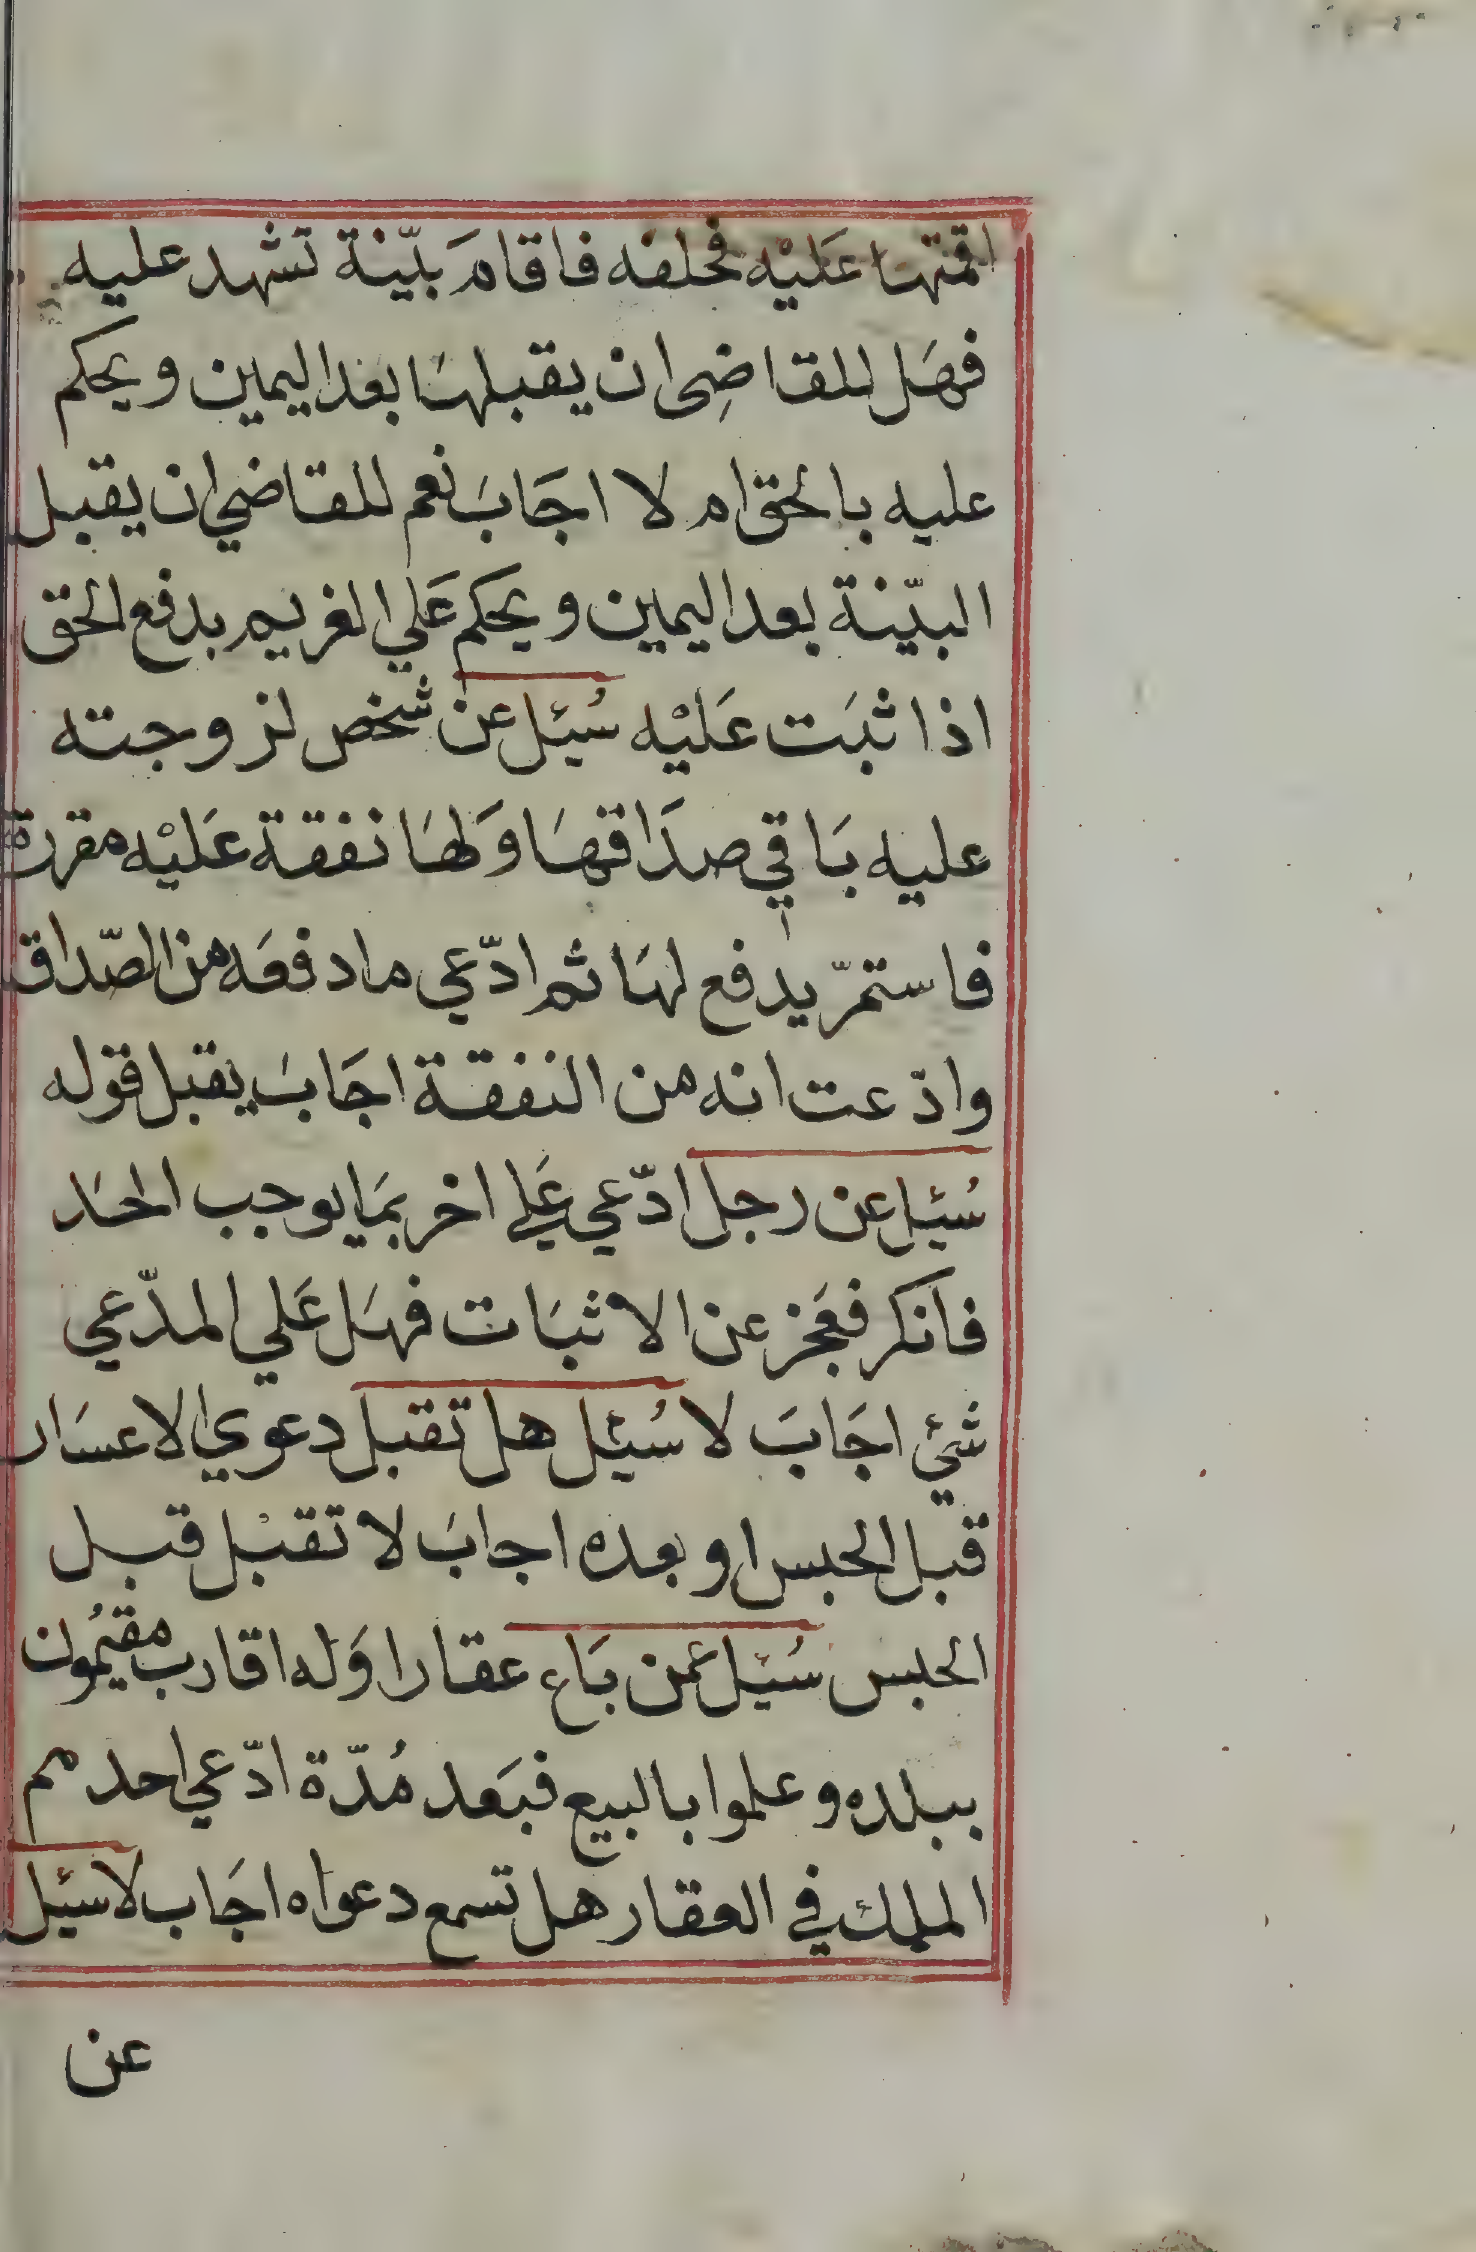 اقمتها عَليْه فحلفه فاقامَ بيّنة تشهد عليه
فهَل للقاضِى ان يقبلهَا بعد اليمين ويحكم
عليه بالحق ام لا اجَابَ نعم للقاضي ان يقبل
البيّنة بعد اليمين ويحكم عَلي الغريم بدفع الحق
اذا ثبَت عَليْه سُئِل عن شخص لزوجته
عليه بَاقي صدَاقهَا وَلهَا نفقة عَليْه مقررة
فاستمرّ يدفع لهَا ثم ادّعي ما دفعَه من الصّداق
وادّعت انه من النفقة اجَابَ يقبل قوله
سُئِل عن رجل ادّعي عَلي اخر بمَا يوجب الحَد
فأنكر فعَجز عن الاثبَات فهَل عَلي المدّعي
شئ اجَابَ لا سُئِل هل تقبل دعوي الاعسَار
قبل الحبس او بعده اجابَ لا تقبْل قبل
الحبس سُئِل عمن بَاع عقارا وَله اقارب مقيمُون
ببلده وعلموا بالبيع فبَعد مُدّة ادّعي احدهم
الملك في العقار هل تسمع دعواه اجَاب لا سئِل
عن